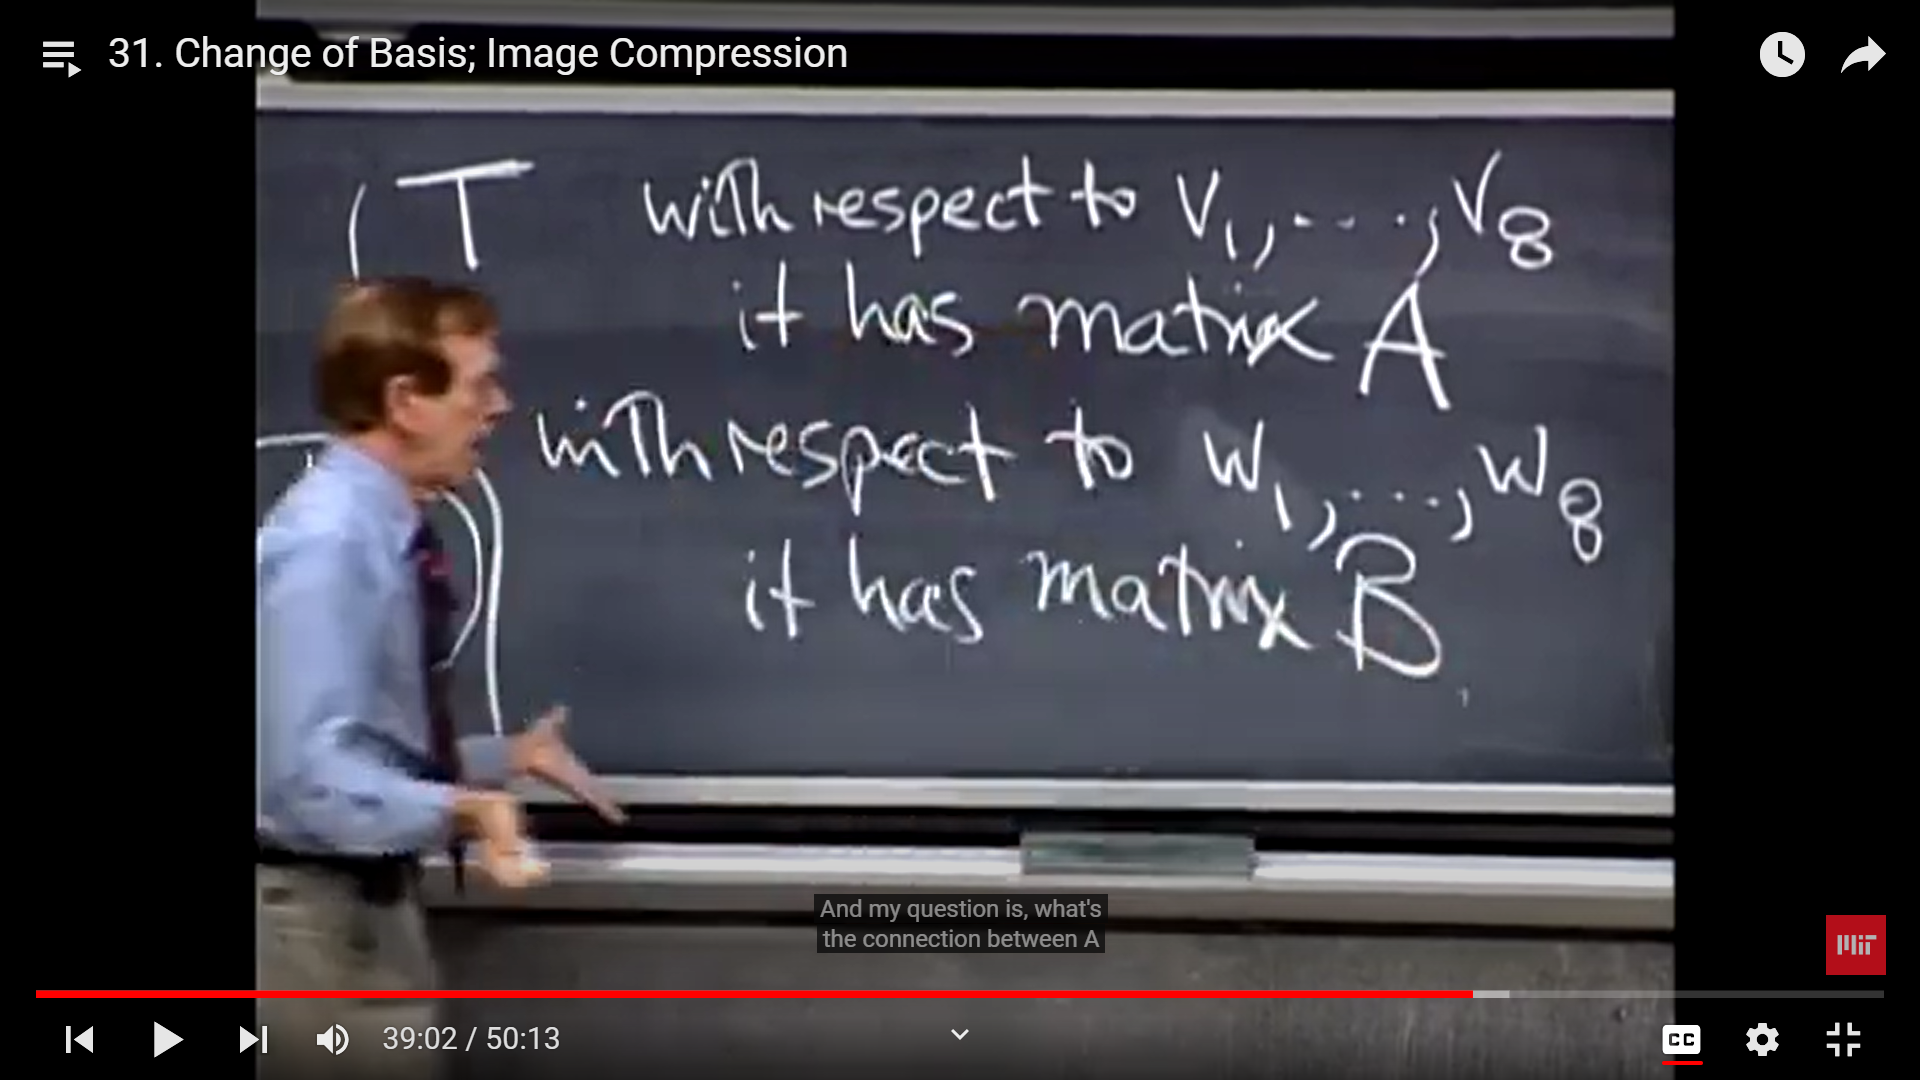 31. Change of Basis; Image Compression
T with respect to v1, ...., v8
it has matrix A
with respect to w1, ..., w8
it has matrix B
And my question is, what's
the connection between A
MIT
39:02 / 50:13
CC